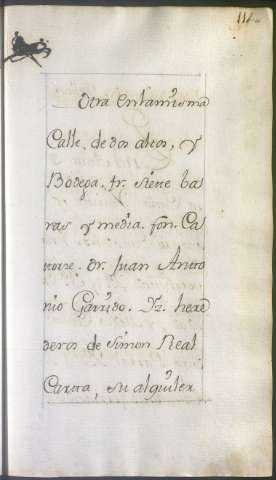 114.
Otra en la misma
Calle, de dos altos, y
Bodega. fr. siete ba
ras y media. fon. Ca
torre. dr. Juan Anto
nio Garrido. Yz. here
deros de Simon Real
Carta, su alquiler